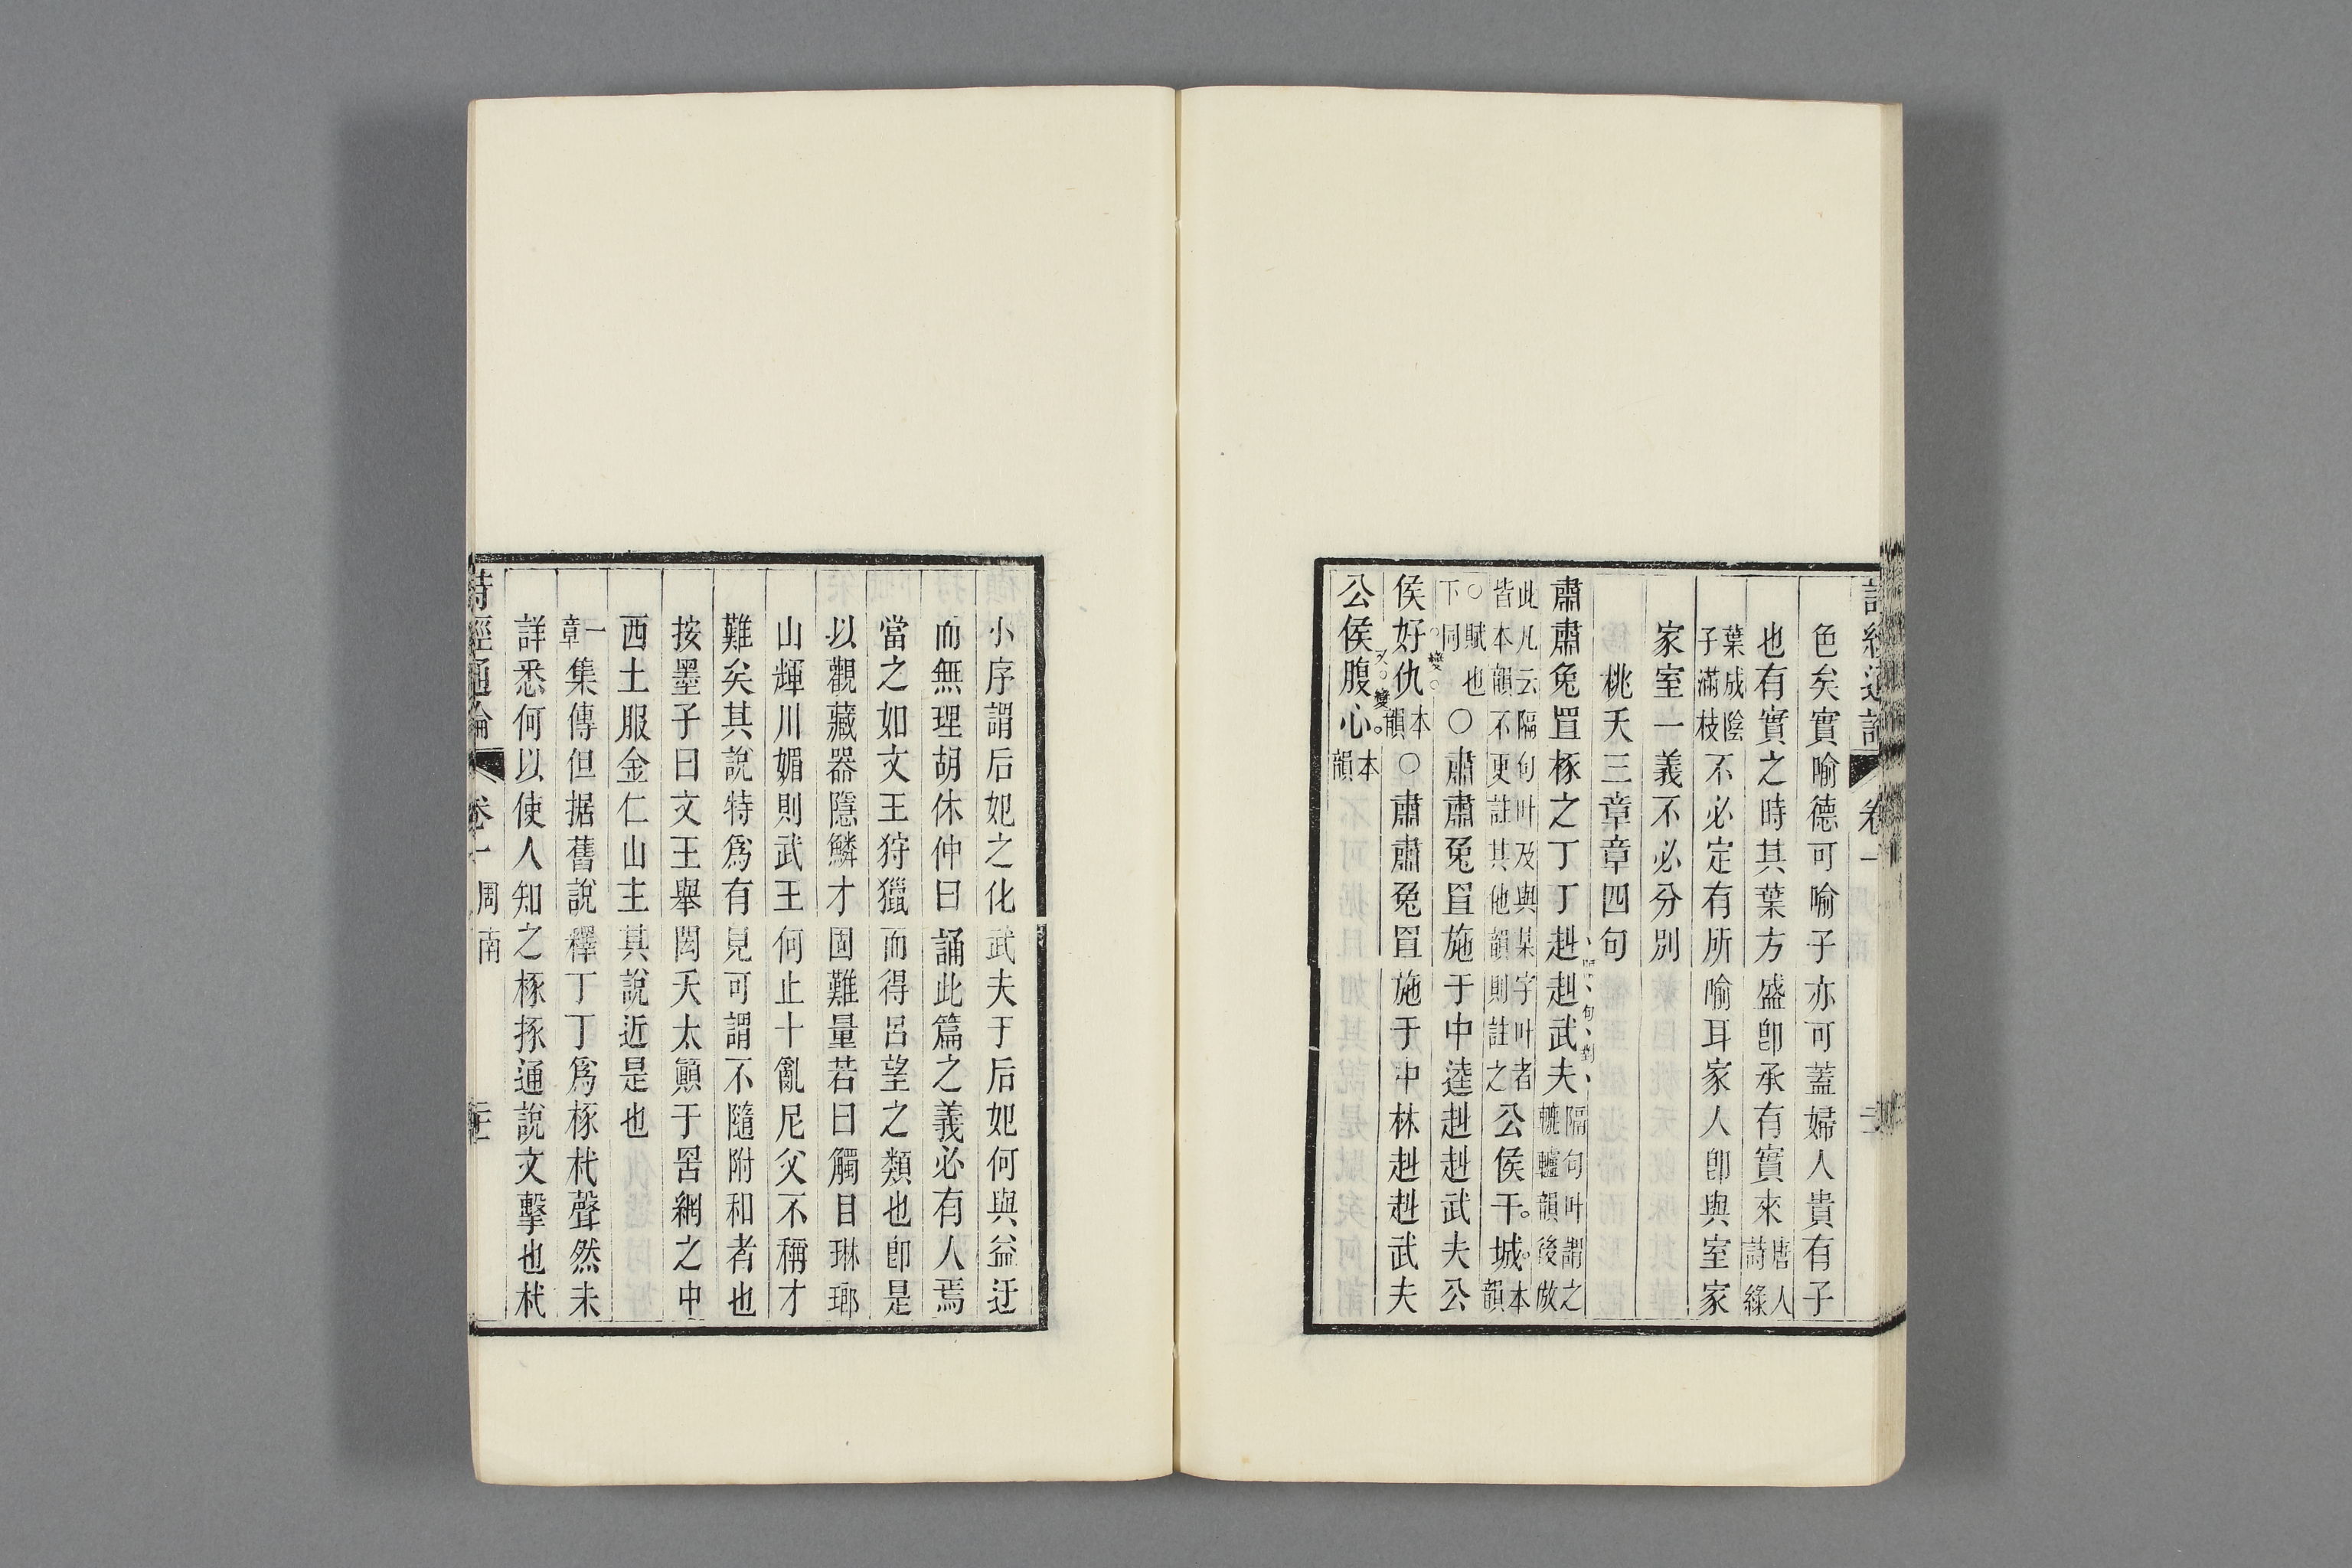 色矣實喻德可喻子亦可蓋婦人貴有子
也有實之時其葉方盛卽承有實來唐人詩綠
葉成陰子滿枝不必定有所喻耳家人卽與室家
家室一義不必分別
桃夭三章章四句
肅肅兔罝椓之丁丁赳赳武夫隔句叶謂之轆轤韻後倣
此凡云隔句叶及與某字叶者皆本韻不更註其他韻則註之公侯干城本韻
○賦也下同○肅肅兔罝施于中逵赳赳武夫公
侯好仇本韻○肅肅兔罝施于中林赳赳武夫
公侯腹心本韻
小序謂后妃之化武夫于后妃何與益迂
而無理胡休仲曰誦此篇之義必有人焉
當之如文王狩獵而得呂望之類也卽是
以觀藏器隱鱗才固難量若曰觸目琳瑯
山輝川媚則武王何止十亂尼父不稱才
難矣其說特爲有見可謂不隨附和者也
按墨子曰文王舉閎夭太顚于罟網之中
西土服金仁山主其說近是也
一章集傳但据舊說釋丁丁爲椓杙聲然未
詳悉何以使人知之椓㧻通說文擊也杙
詩經通論 卷一 周南